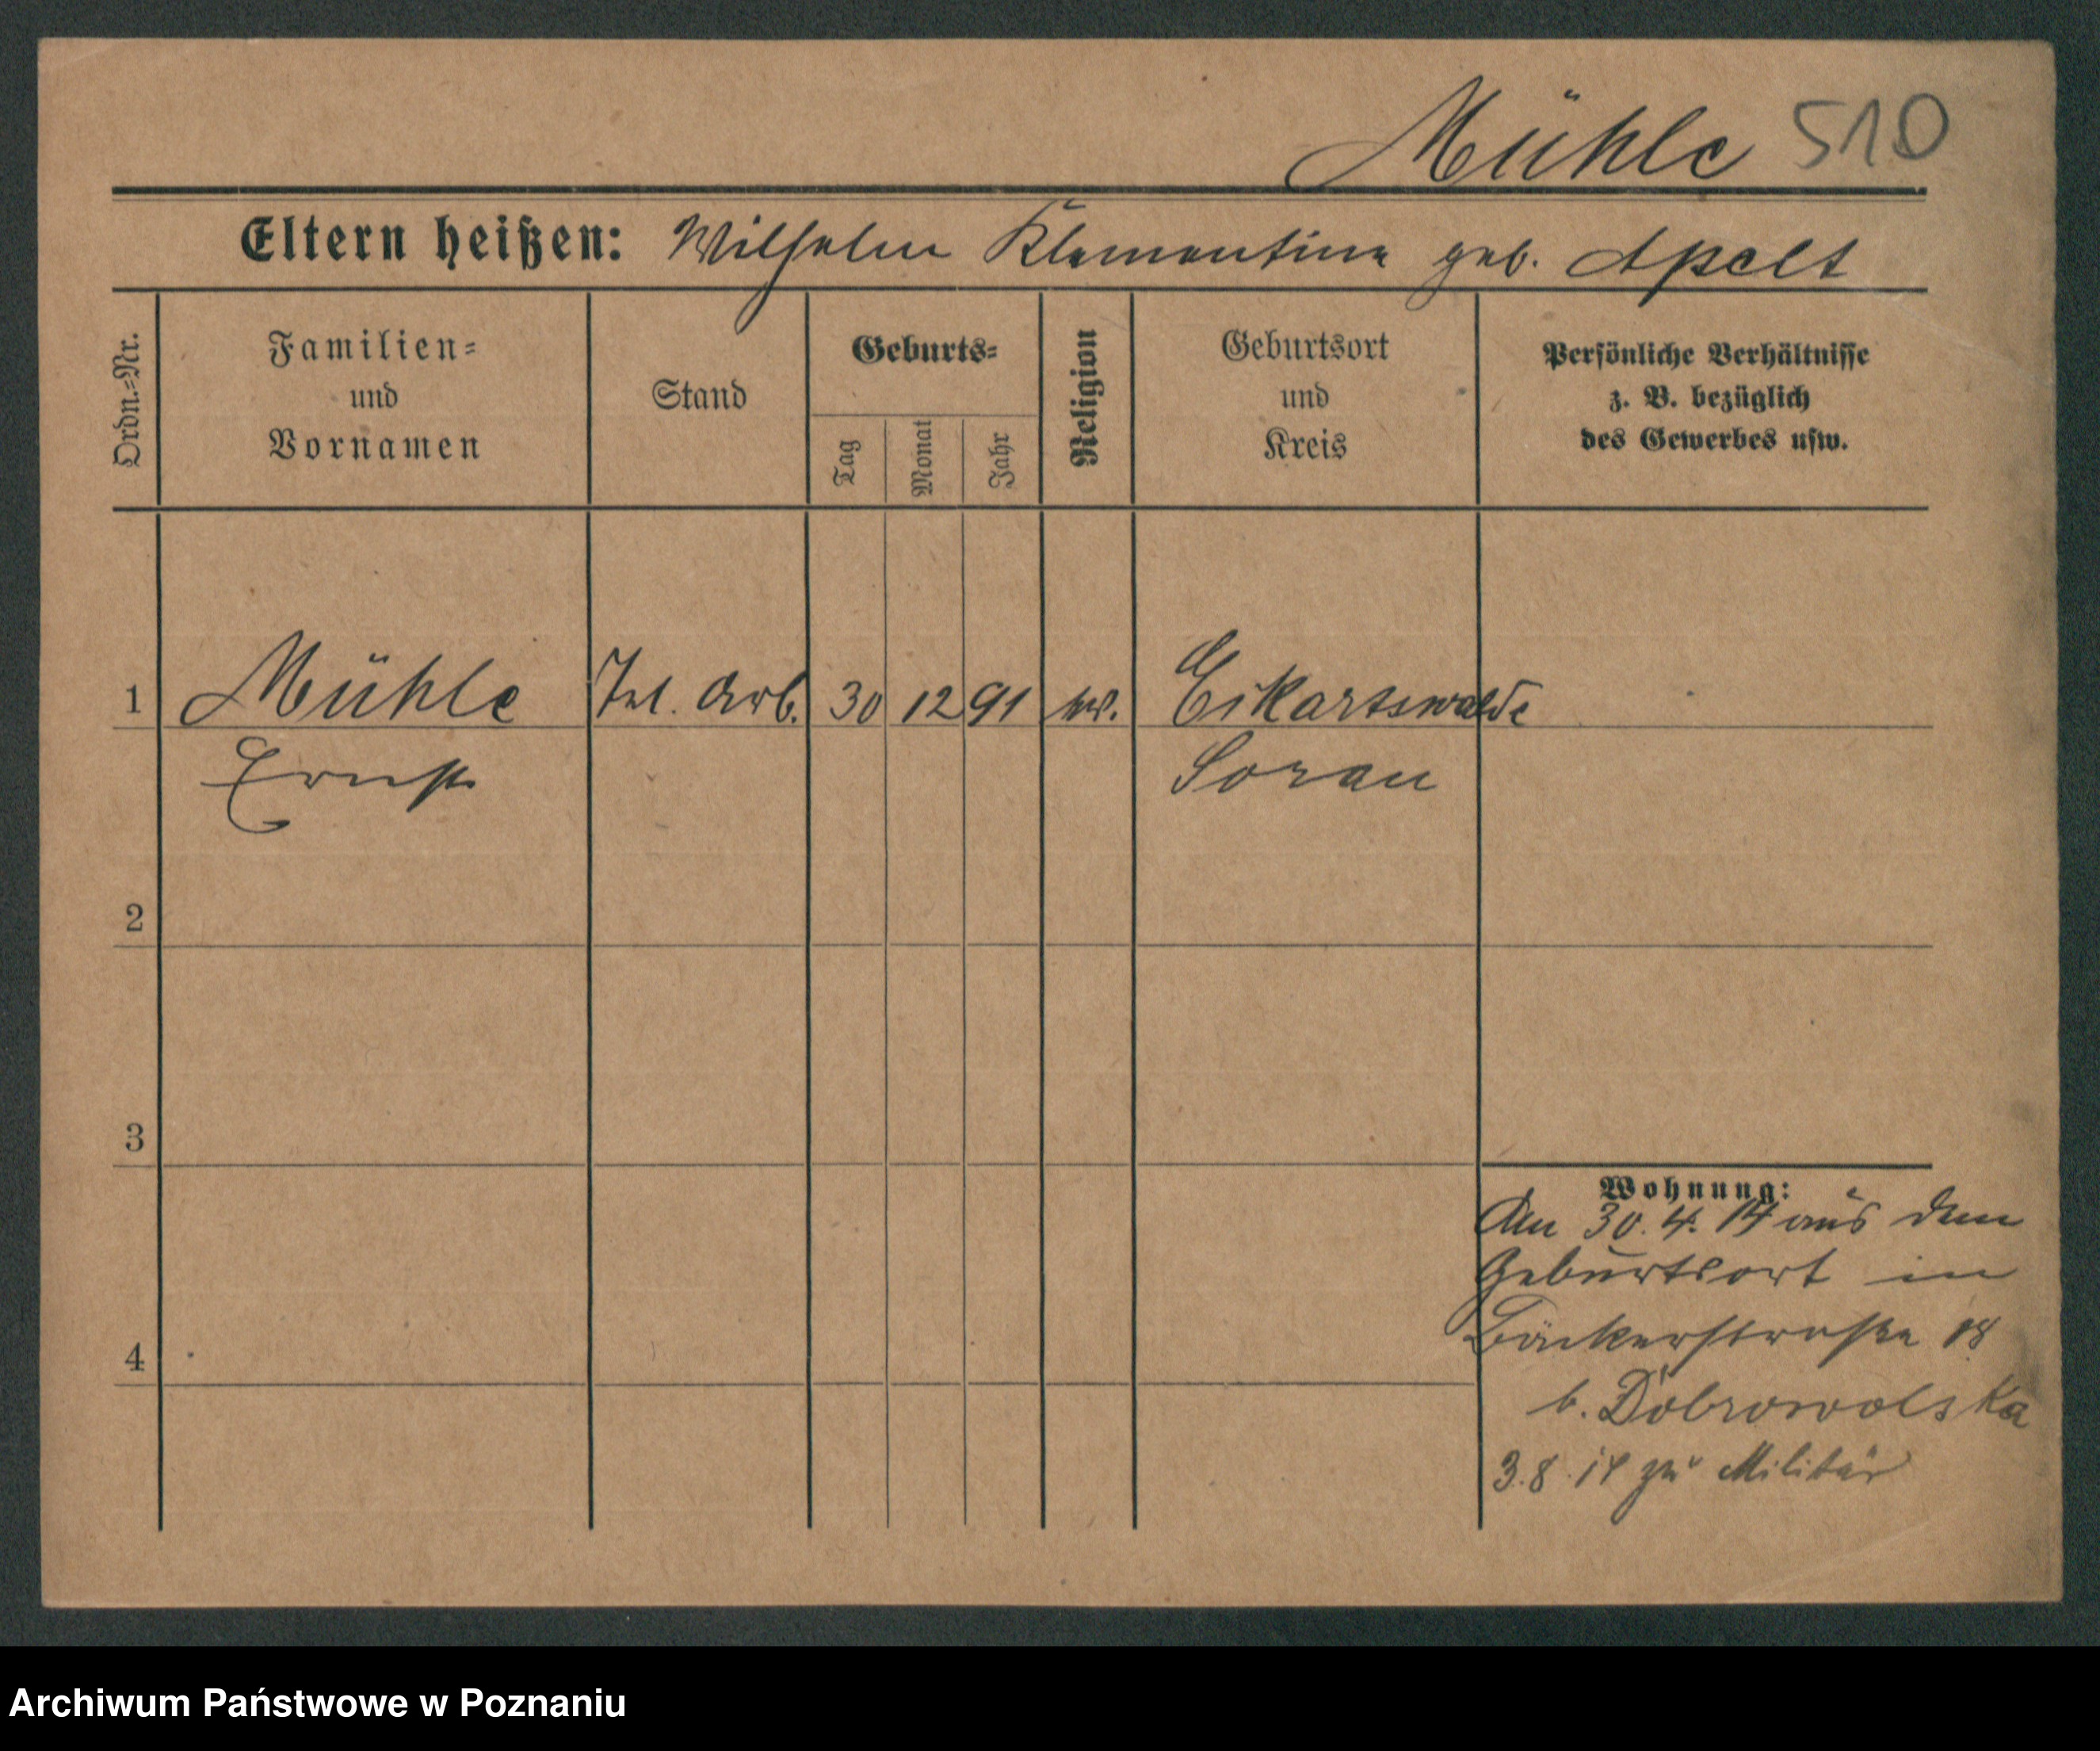 Mühle 510
Eltern heißen: Wilhelm Klementine geb. Apelt
Ordn.=Nr.
Familien=
und
Vornamen
Stand
Geburts=
Tag
Monat
Jahr
Religion
Geburtsort
und
Kreis
Persönliche Verhältnisse
z. B. bezüglich
des Gewerbes usw.
1 Mühle Tel. Arb. 30 12 91 ev. Eckartswalde
Ernst Sorau
2
3
Wohnung:
Am 30.4.14 aus dem
Geburtsort in
Bäckerstraße 18
4
b. Dobrowolska
3.8.14 zu Militär
Archiwum Państwowe w Poznaniu